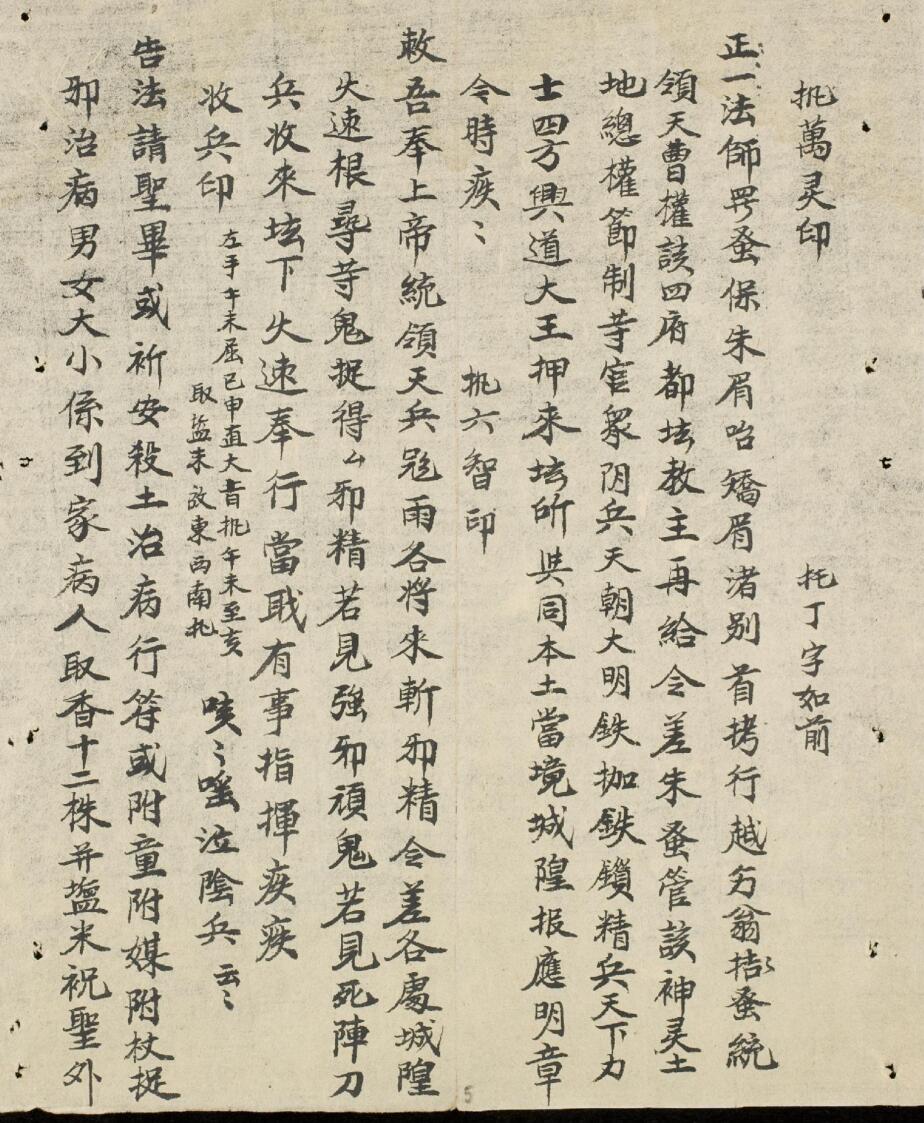 执萬灵印 托丁字如前
正一法師咢蚤保朱眉咍矯眉渚别首拷行越穷翁拮〻蚤統
領天曹權該四府都坛教主再給令差朱蚤管該神灵土
地總權節制䓁官衆阴兵天朝大明鉄枷鉄鎖精兵天下力
士四方興道大王押来坛所共同本土當境城隍报應明章
令時疾〻 执六智印
敕吾奉上帝統領天兵𩲡雨各将來斬邪精令差各處城隍
火速根尋䓁鬼捉得厶邪精若見強邪頑鬼若見死陣刀
兵收來坛下火速奉行當戢有事指揮疾疾
收兵印 左手午未屈巳申直大音执午未至亥
取盐未放東西南扎 咳〻嗂泣陰兵云〻
告法請聖畢或祈安殺土治病行符或附童附媒附杖捉
邪治病男女大小係到家病人取香十二株并盬米祝聖外
5